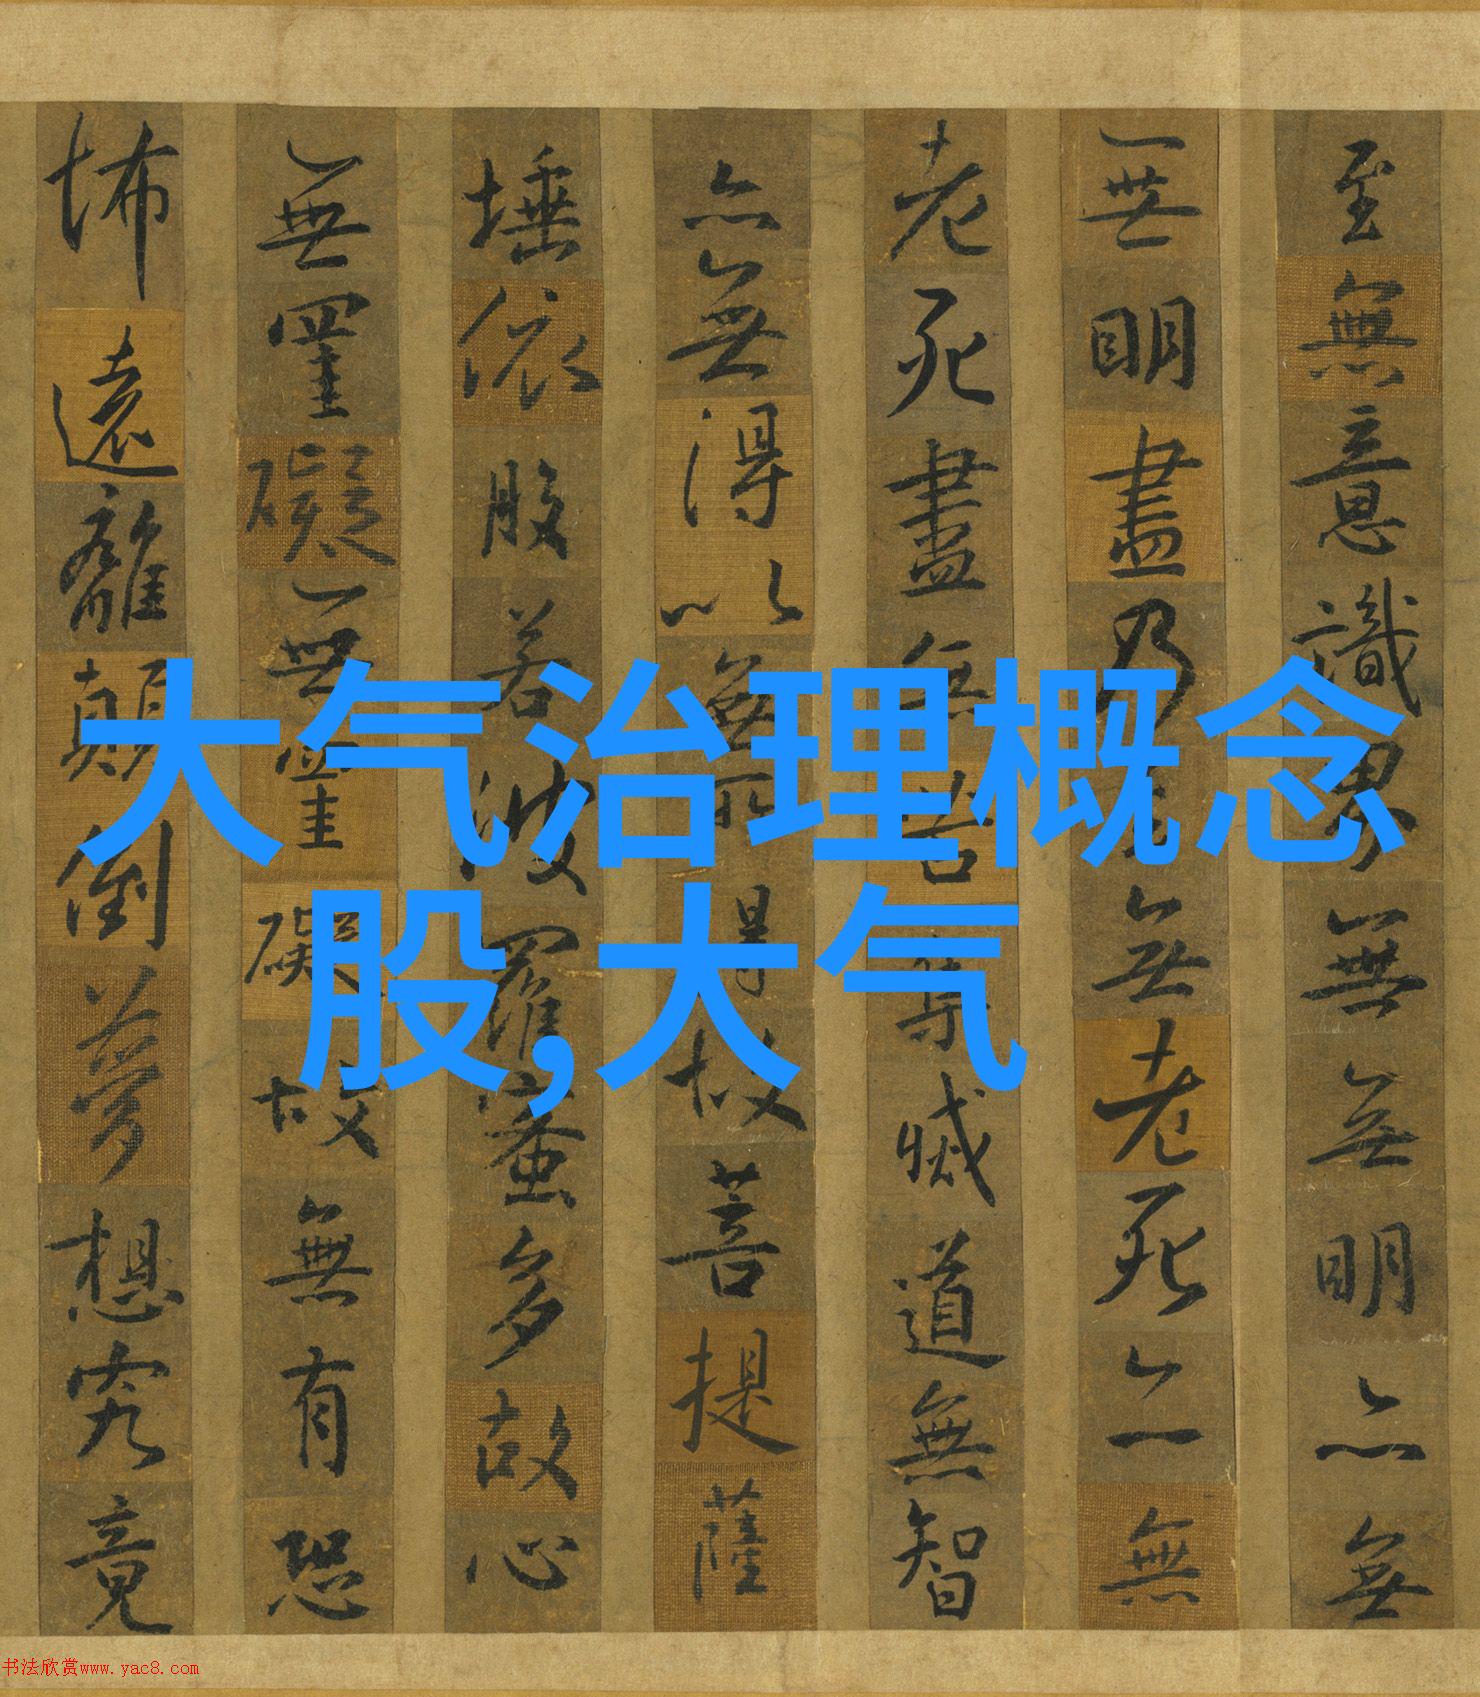 至無意識界無無明亦無
無明盡乃至無老死亦無
老死盡無苦集滅道無智
亦無得以無所得故菩提薩
埵依般若波羅蜜多故心
無罣礙無罣礙故無有恐
怖遠離顛倒夢想究竟
大气治理概念
股,大气
书法欣赏www.yac8.com